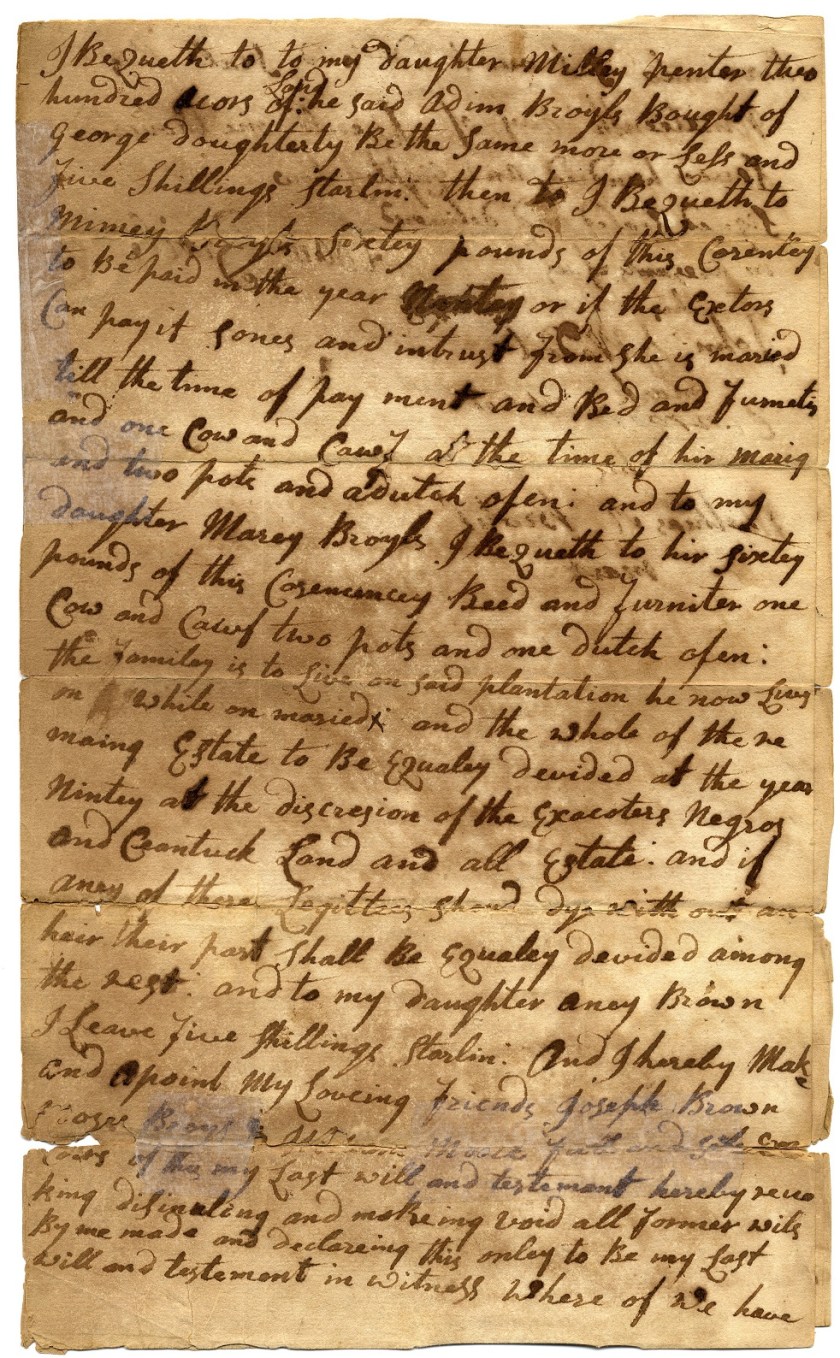 I Bequeth to to my daughter Milley penter two
hundred acors Land of: he said Adim Broyls Bought of
George doughterty Be the same more or Less and
five Shillings Starlin: then to I Bequeth to
Mimey Broyls sixtey pounds of this Corentcy
to Be paid in the year or if the Extors
Can pay it sones and intrust from she is maried
till the time of pay ment and Bed and furnetis
and one Cow and Cawf at the time of hir marig
and two pots and a dutch ofen: and to my
daughter Marey Broyls I Bequeth to hir sixtey
pounds of this Corenuncey Beed and furniter one
Cow and Cawf two pots and one dutch ofen:
the familey is to Live on said plantation he now Lives
on while on maried x and the whole of the re
maing Estate to Be Equaley devided at the year
Nintey at the discresion of the Exacoters Negros
and Ceantuck Land and all Estate: and if
aney of these Legittees shoud dye with out an
heir their part shall Be Equaley devided among
the rest: and to my daughter aney Brown
I Leave five shillings Starlin: And I hereby Make
and apoint My Loveing friends Joseph Brown
Broyls
of this my Last will and testement hereby revo
king disinuling and makeing void all former wils
By me made and declareing this onley to Be my Last
will and testement in witness where of we have